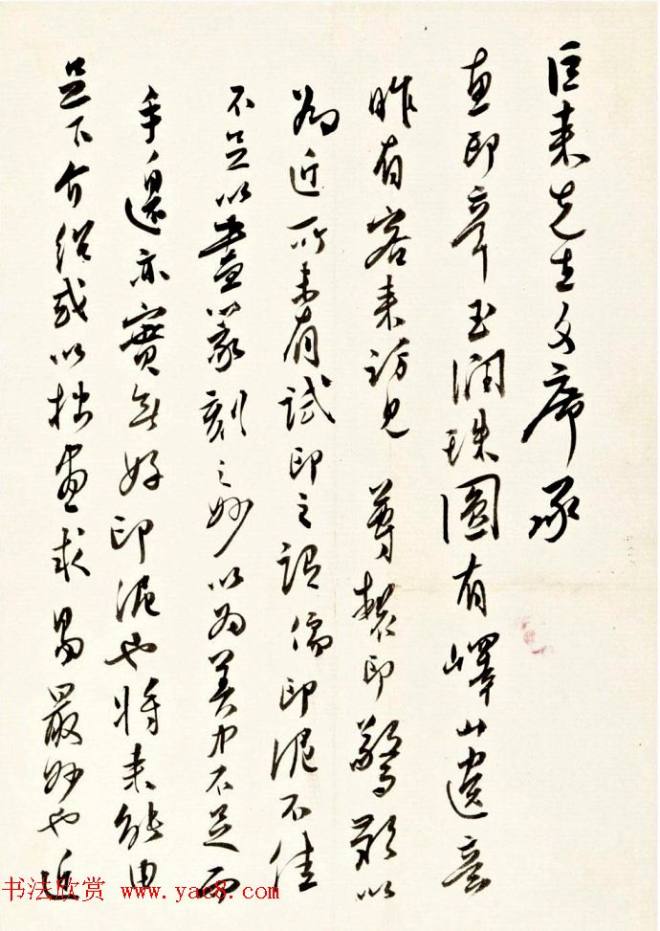 巨来先生文席承
惠印章玉润珠圆有峄山遗意
昨有客来访见尊製印驚歎以
为近所未有试印之谓係印泥不佳
不足以盡篆刻之妙以为美中不足而
手邊亦實無好印泥也将来能由
足下介绍或以拙畫求易最妙也近
书法欣赏 www.yac8.com